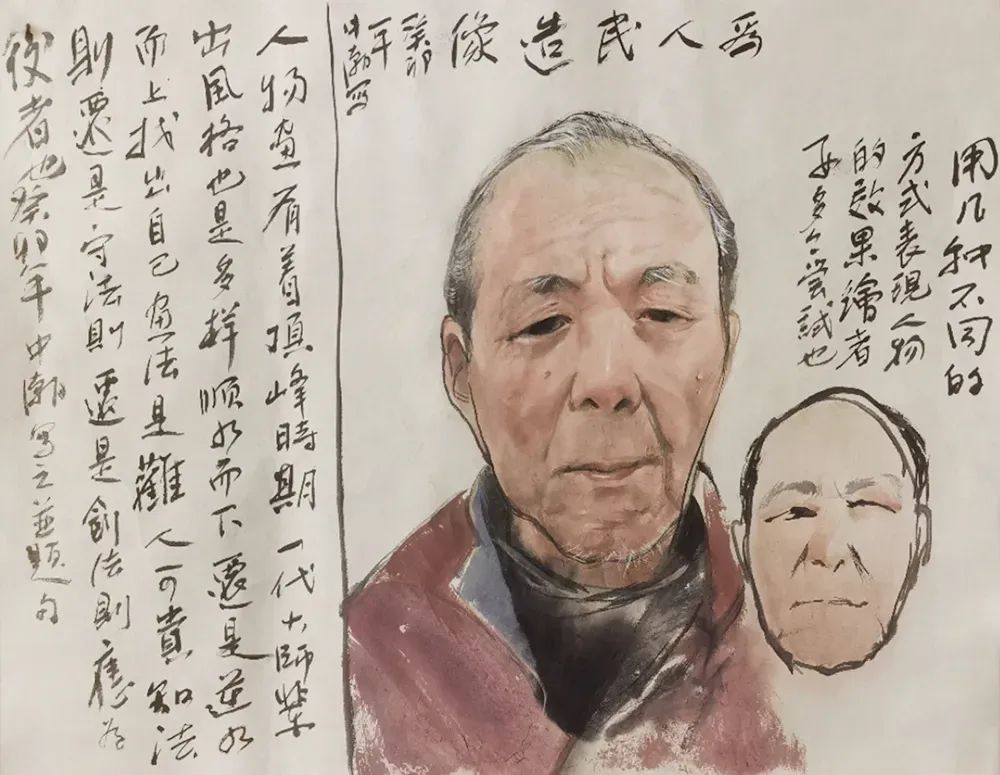 爲人民造像
癸卯
年
中瀚写
用几种不同的
方式表現人物
的效果繪者
多个尝試也
人物畫有着頂峰時期一代大師辈
出風格也是多样順水而下還是逆水
而上找出自己畫法是難人可貴知法
則還是守法則還是創法則應为
後者也癸卯年中瀚写之並题句